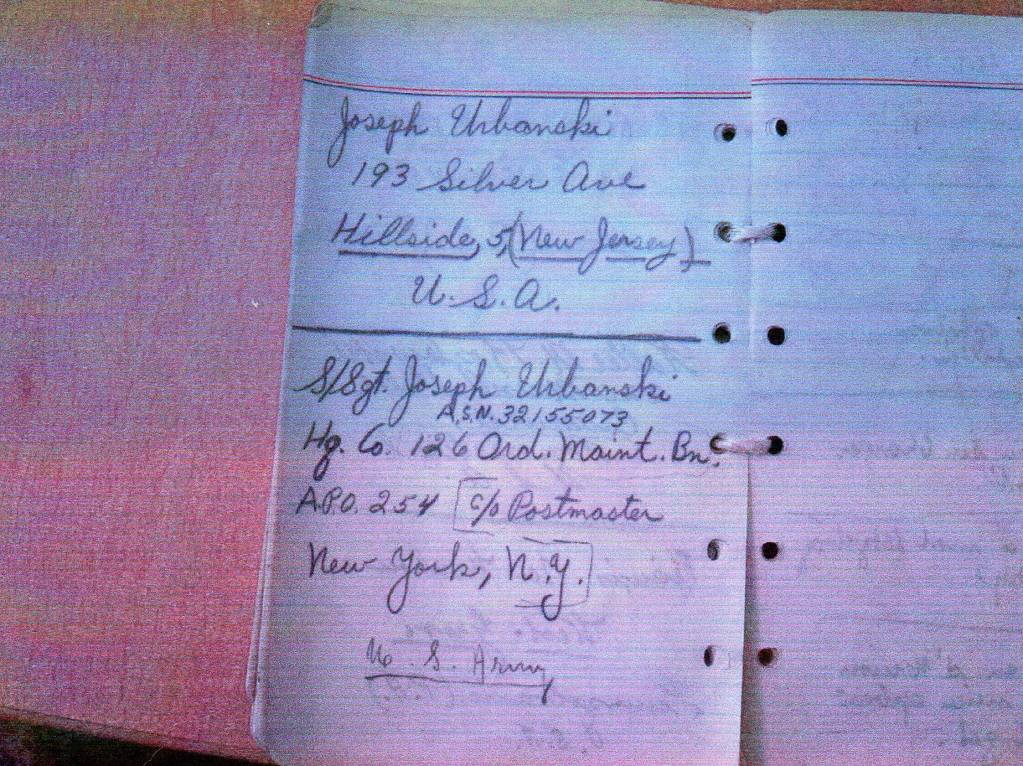 Joseph Urbanski
193 Silver Ave
Hillside, 5, (New Jersey)
U. S. A.
S/Sgt. Joseph Urbanski
A.S.N. 32155073
Hq. Co. 126 Ord. Maint. Bn.
A.P.O. 254 c/o Postmaster
New York, N.Y.
U. S. Army